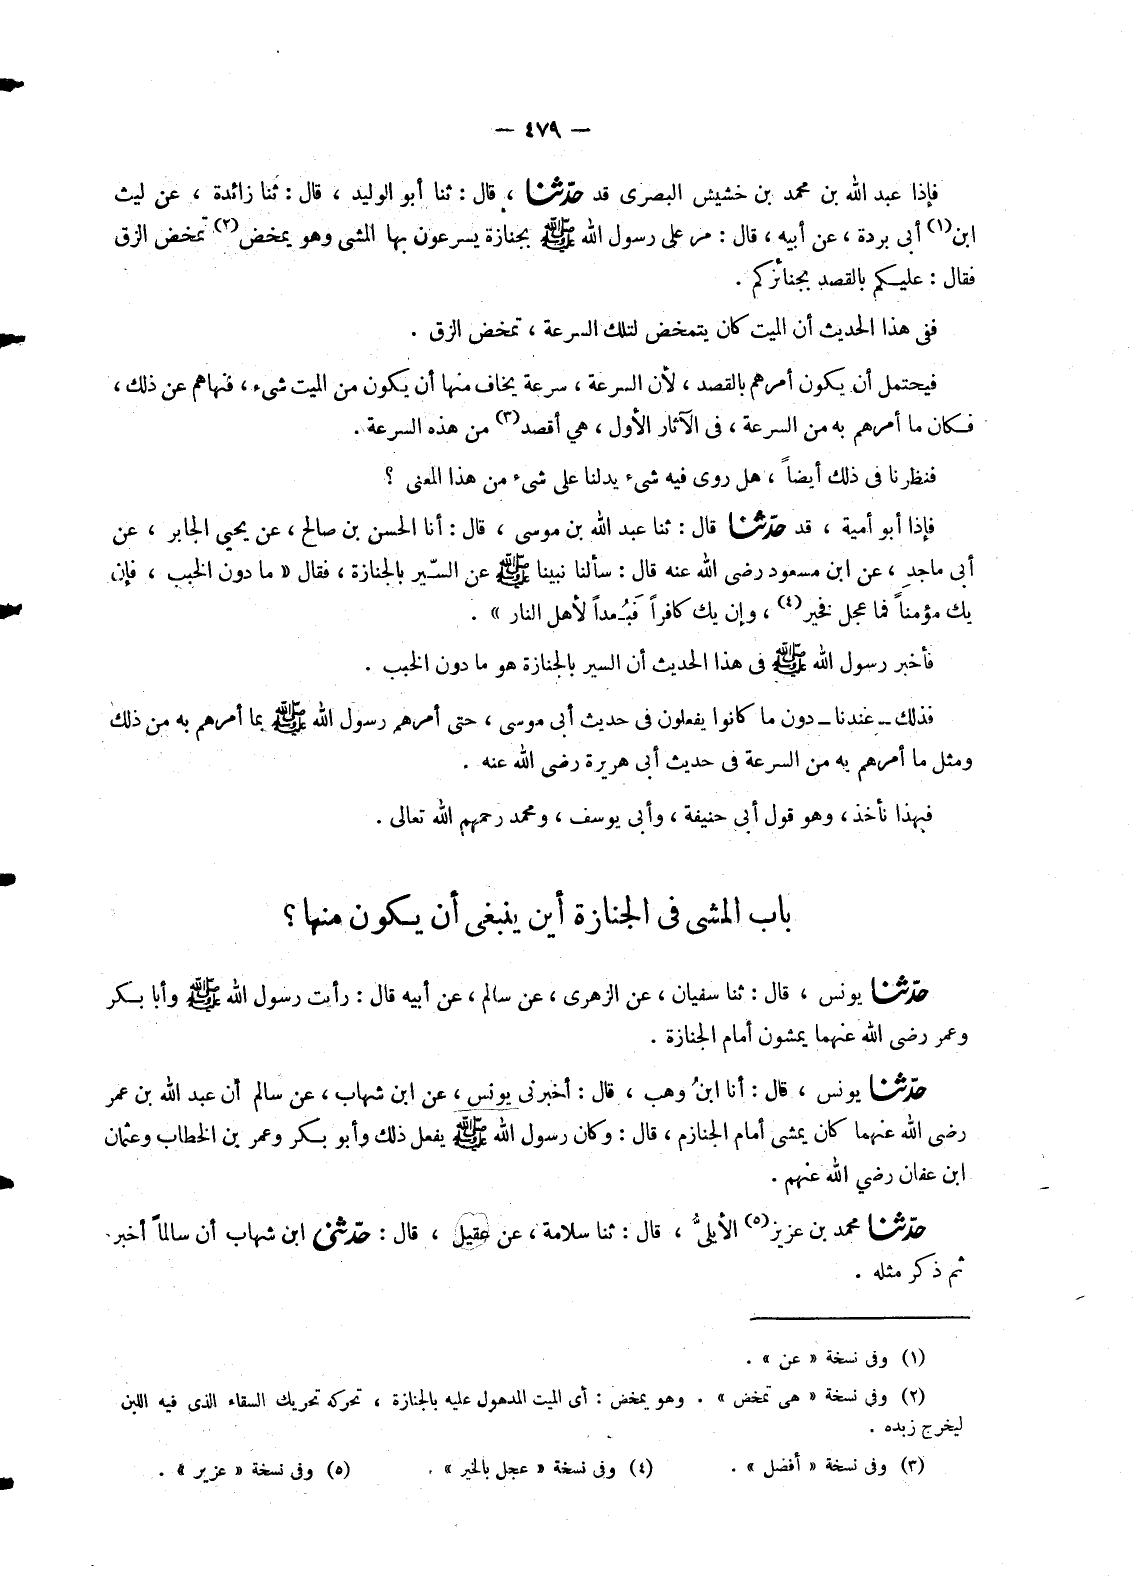 — ٤٧٩ —
فإذا عبد الله بن محمد بن خشيش البصرى قد حدّثنا ، قال : ثنا أبو الوليد ، قال : ثنا زائدة ، عن ليث
ابن(١) أبى بردة ، عن أبيه ، قال : مر على رسول الله ﷺ بجنازة يسرعون بها المشى وهو يمخض(٢) تمخض الزق
فقال : عليكم بالقصد بجنائزكم .
ففى هذا الحديث أن الميت كان يتمخض لتلك السرعة ، تمخض الزق .
فيحتمل أن يكون أمرهم بالقصد ، لأن السرعة ، سرعة يخاف منها أن يكون من الميت شىء ، فنهاهم عن ذلك ،
فكان ما أمرهم به من السرعة ، فى الآثار الأول ، هي أقصد(٣) من هذه السرعة .
فنظرنا فى ذلك أيضاً ، هل روى فيه شىء يدلنا على شىء من هذا المعنى ؟
فإذا أبو أمية ، قد حدّثنا قال : ثنا عبد الله بن موسى ، قال : أنا الحسن بن صالح ، عن يحيي الجابر ، عن
أبى ماجد ، عن ابن مسعود رضى الله عنه قال : سألنا نبينا ﷺ عن السّير بالجنازة ، فقال « ما دون الخبب ، فإن
يك مؤمناً فما عجل فخير(٤) ، وإن يك كافراً فبُعداً لأهل النار » .
فأخبر رسول الله ﷺ فى هذا الحديث أن السير بالجنازة هو ما دون الخبب .
فذلك ــ عندنا ــ دون ما كانوا يفعلون فى حديث أبى موسى ، حتى أمرهم رسول الله ﷺ بما أمرهم به من ذلك
ومثل ما أمرهم به من السرعة فى حديث أبى هريرة رضى الله عنه .
فبهذا نأخذ ، وهو قول أبى حنيفة ، وأبى يوسف ، ومحمد رحمهم الله تعالى .
باب المشى فى الجنازة أين ينبغى أن يكون منها ؟
حدّثنا يونس ، قال : ثنا سفيان ، عن الزهرى ، عن سالم ، عن أبيه قال : رأيت رسول الله ﷺ وأبا بكر
وعمر رضى الله عنهما يمشون أمام الجنازة .
حدّثنا يونس ، قال : أنا ابنُ وهب ، قال : أخبرنى يونس ، عن ابن شهاب ، عن سالم أن عبد الله بن عمر
رضى الله عنهما كان يمشى أمام الجنازم ، قال : وكان رسول الله ﷺ يفعل ذلك وأبو بكر وعمر بن الخطاب وعثمان
ابن عفان رضي الله عنهم .
حدّثنا محمد بن عزيز(٥) الأيلىُّ ، قال : ثنا سلامة ، عن عقيل ، قال : حدّثنى ابن شهاب أن سالماً أخبر
ثم ذكر مثله .
(١) وفى نسخة « عن » .
(٢) وفى نسخة « هى تمخض » . وهو يمخض : أى الميت المدهول عليه بالجنازة ، تحركه تحريك السقاء الذى فيه اللبن
ليخرج زبده .
(٣) وفى نسخة « أفضل » . (٤) وفى نسخة « عجل بالخير » . (٥) وفى نسخة « عزير » .